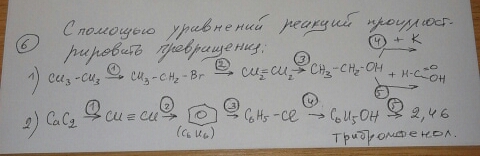 6 С помощью уравнений реакций проиллюст-
рировать превращения:
1) CH₃-CH₃ ①→ CH₃-CH₂-Br ②→ CH₂=CH₂ ③→ CH₃-CH₂-OH ④→ + K
⑤→ + H-C=O OH
2) CaC₂ ①→ CH≡CH ②→ (C₆H₆) ③→ C₆H₅-Cl ④→ C₆H₅OH ⑤→ 2,4,6
трибромфенол.